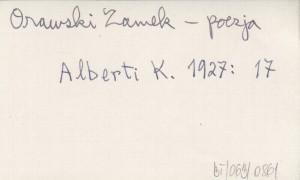 Orawski Zamek – poezja
Alberti K. 1927: 17
bi/069/0861